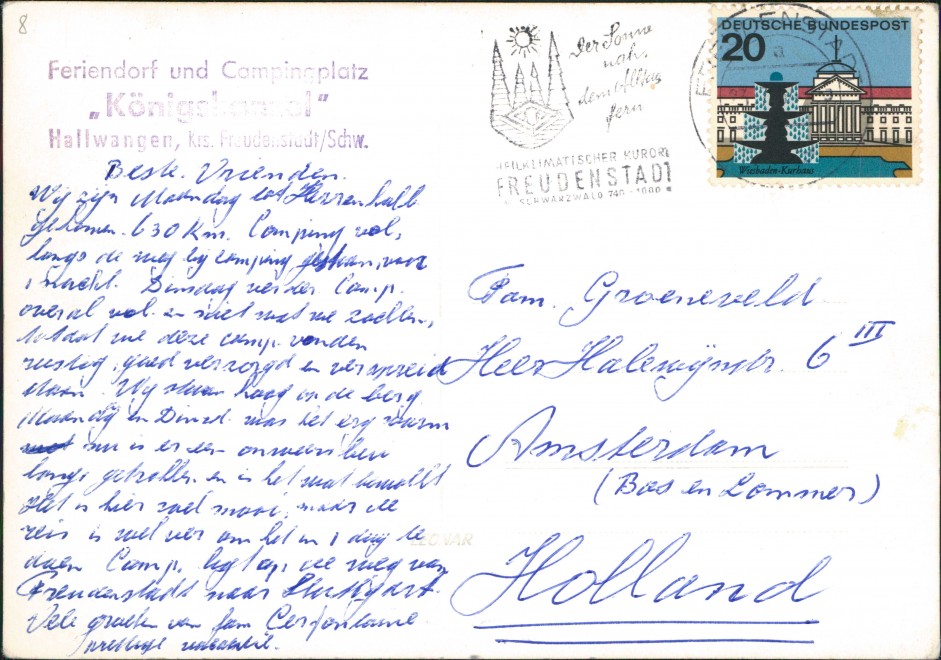 8
Feriendorf und Campingplatz
„Königskanzel"
Hallwangen, Krs. Freudenstadt/Schw.
Der Sonne
nah,
dem Alltag
fern
HEILKLIMATISCHER KURORT
FREUDENSTADT
SCHWARZWALD 740-1000 m
DEUTSCHE BUNDESPOST
20
Wiesbaden-Kurhaus
Beste Vrienden.
Wij zijn Maandag tot Herrenhalb
gekomen. 630 Km. Camping vol,
langs de weg lig camping gestaan, voor
1 nacht. Dinsdag verder Camp.
overal vol en niet wat we zochten,
totdat we deze camp. vonden
rustig, goed verzorgd en verspreid
staan. Wij staan hoog op de berg.
Maandag en Dinsd. was het erg warm
nu is er een onweersbui
langs getrokken en is het wat bewolkt
Het is hier wel mooi, maar de
reis is wel ver om het in 1 dag te
doen Camp. ligt op de weg van
Freudenstadt naar Stuttgart.
Vele groeten van fam Cerfontaine
prettige vacantie.
Fam. Groeneveld
Heer Halewijnstr. 6 III
Amsterdam
(Bos en Lommer)
Holland